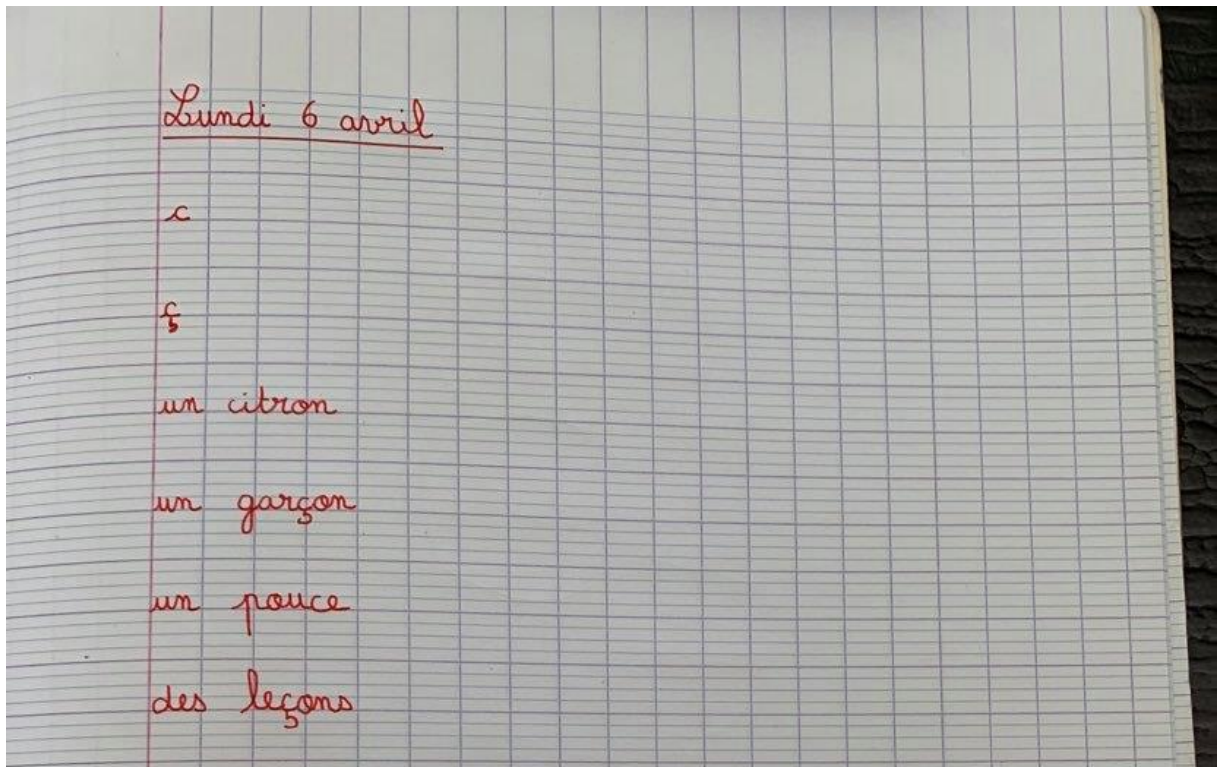 Lundi 6 avril
c
ç
un citron
un garçon
un pouce
des leçons